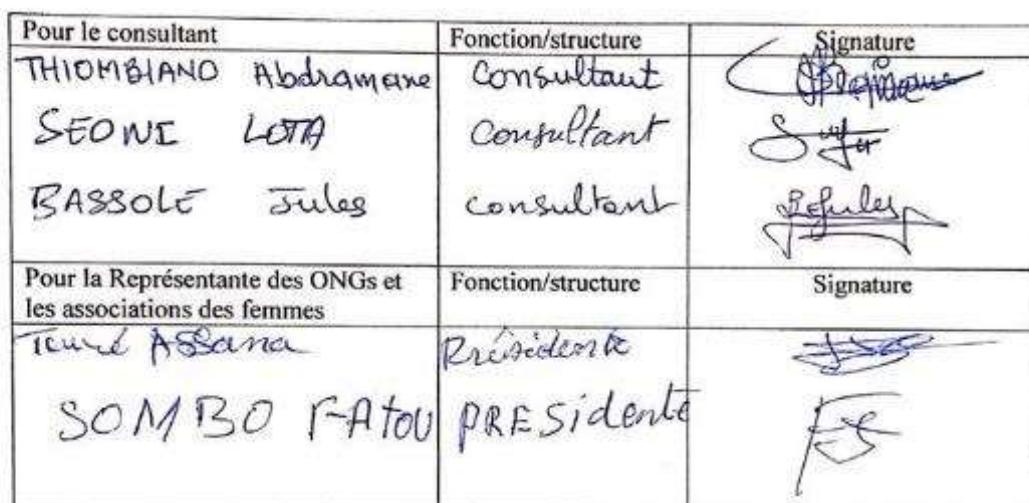 Pour le consultant Fonction/structure Signature
THIOMBIANO Abdramane Consultant
SEONI LOTA Consultant
BASSOLE Jules consultant
Pour la Représentante des ONGs et les associations des femmes Fonction/structure Signature
Assana Présidente
SOMBO FAtou PRESidente